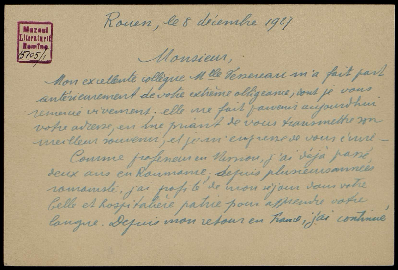 Rouen, le 8 décembre 1927
Muzeul
Literaturii
Române
15705/1
Monsieur,
Mon excellente collègue Mlle m'a fait part
antérieurement de votre extrême obligeance, dont je vous
remercie vivement; elle me fait parvenir aujourd'hui
votre adresse, en me priant de vous transmettre son
meilleur souvenir, et je m'empresse de vous écrire.
Comme professeur en, j'ai déjà passé
deux ans en Roumanie. Depuis plusieurs années
romaniste, j'ai profité de mon séjour dans votre
belle et hospitalière patrie pour apprendre votre
langue. Depuis mon retour en France, j'ai continué